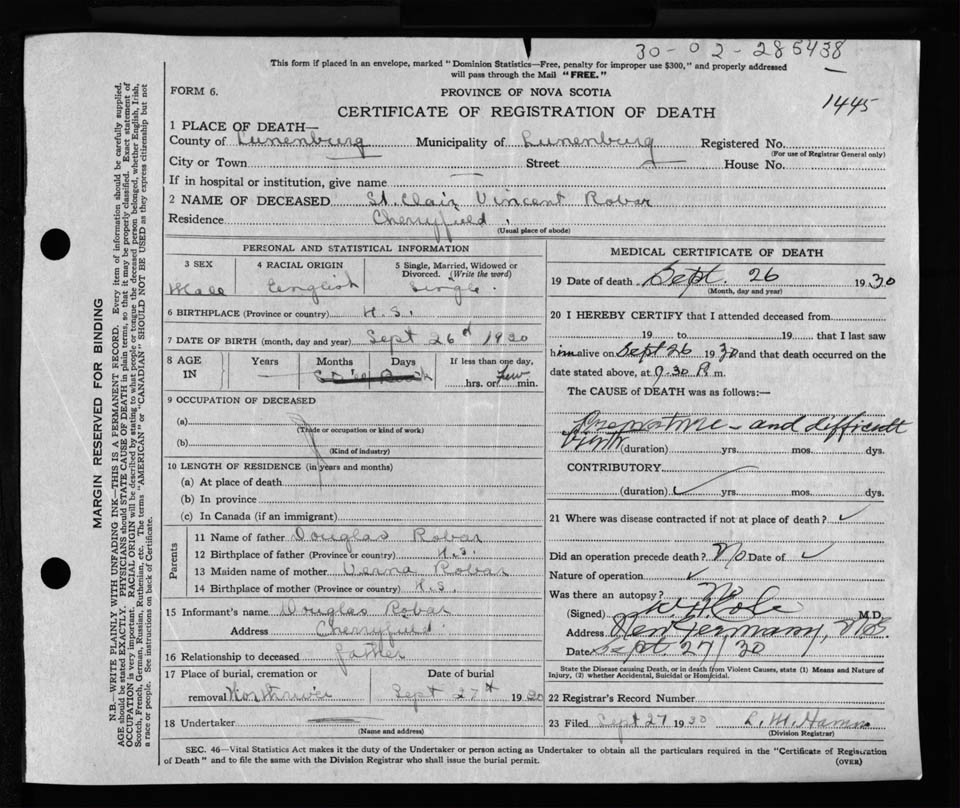 30-02-285438
This form if placed in an envelope, marked "Dominion Statistics—Free, penalty for improper use $300," and properly addressed
will pass through the Mail "FREE."
FORM 6.
PROVINCE OF NOVA SCOTIA
1445
CERTIFICATE OF REGISTRATION OF DEATH
1 PLACE OF DEATH—
County of Lunenburg Municipality of Lunenburg Registered No.
(For use of Registrar General only)
City or Town Street — House No.
If in hospital or institution, give name —
2 NAME OF DECEASED St. Clair Vincent Robar
Residence Cherryfield.
(Usual place of abode)
PERSONAL AND STATISTICAL INFORMATION
3 SEX
Male
4 RACIAL ORIGIN
English
5 Single, Married, Widowed or
Divorced. (Write the word)
Single.
6 BIRTHPLACE (Province or country) N.S.
7 DATE OF BIRTH (month, day and year) Sept 26th 1930
8 AGE IN
Years
—
Months
Days
If less than one day,
hrs. or few min.
9 OCCUPATION OF DECEASED
(a)
(Trade or occupation or kind of work)
(b)
(Kind of industry)
10 LENGTH OF RESIDENCE (in years and months)
(a) At place of death
(b) In province
(c) In Canada (if an immigrant)
Parents
11 Name of father Douglas Robar
12 Birthplace of father (Province or country) N.S.
13 Maiden name of mother Verna Robar
14 Birthplace of mother (Province or country) N.S.
15 Informant's name Douglas Robar
Address Cherryfield.
16 Relationship to deceased father
17 Place of burial, cremation or
removal
Date of burial
Sept 27th 1930
18 Undertaker —
(Name and address)
MEDICAL CERTIFICATE OF DEATH
19 Date of death Sept. 26 1930
(Month, day and year)
20 I HEREBY CERTIFY that I attended deceased from
19 to 19 that I last saw
him alive on Sept 26 1930 and that death occurred on
date stated above, at 9.30 P. m.
The CAUSE of DEATH was as follows:—
Premature – and difficult
birth (duration) yrs. mos. dys.
CONTRIBUTORY
(duration) ✓ yrs. mos. dys.
21 Where was disease contracted if not at place of death? ✓
Did an operation precede death? No Date of ✓
Nature of operation ✓
Was there an autopsy? No
(Signed) Cole M.D.
Address New Germany, N.S.
Date Sept 27/30
State the Disease causing Death, or in death from Violent Causes, state (1) Means and Nature of
Injury, (2) whether Accidental, Suicidal or Homicidal.
22 Registrar's Record Number
23 Filed Sept 27 1930 L. M.
(Division Registrar)
SEC. 46—Vital Statistics Act makes it the duty of the Undertaker or person acting as Undertaker to obtain all the particulars required in the "Certificate of Registration
of Death" and to file the same with the Division Registrar who shall issue the burial permit.
(OVER)
MARGIN RESERVED FOR BINDING
N.B.—WRITE PLAINLY WITH UNFADING INK—THIS IS A PERMANENT RECORD. Every item of information should be carefully supplied.
AGE should be stated EXACTLY. PHYSICIANS should STATE CAUSE OF DEATH in plain terms, so that it may be properly classified. Exact statement of
OCCUPATION is very important. RACIAL ORIGIN will be described by stating to what people or tongue the deceased person belonged, whether English, Irish,
Scotch, French, German, Russian, Ruthenian, etc. The terms "AMERICAN" or "CANADIAN" SHOULD NOT BE USED as they express citizenship but not
a race or people. See instructions on back of Certificate.